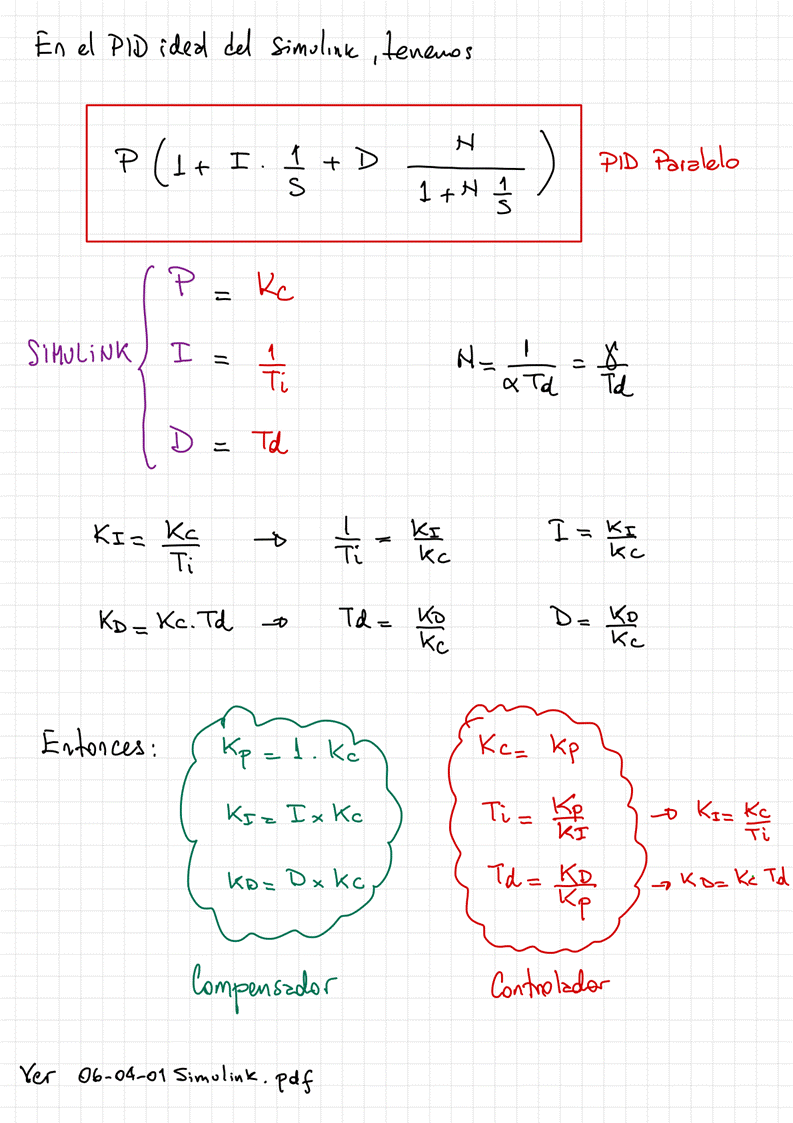 En el PID ideal del Simulink, tenemos
P (1 + I · 1/S + D N/(1 + N 1/S)) PID Paralelo
SIMULINK
P = Kc
I = 1/Ti N = 1/(α Td) = γ/Td
D = Td
KI = Kc/Ti → 1/Ti = KI/Kc I = KI/Kc
KD = Kc. Td → Td = KD/Kc D = KD/Kc
Entonces:
Kp = 1 . Kc
KI = I x Kc
KD = D x Kc
Compensador
Kc = Kp
Ti = Kp/KI → KI = Kc/Ti
Td = KD/Kp → KD = Kc Td
Controlador
Ver 06-04-01 Simulink.pdf